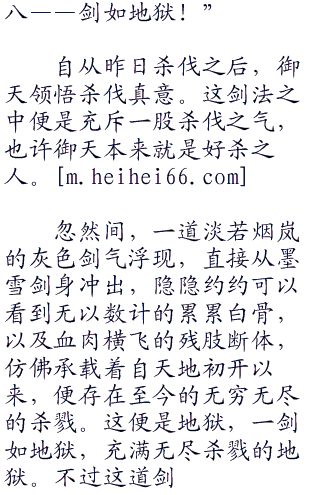 八——剑如地狱！”
自从昨日杀伐之后，御
天领悟杀伐真意。这剑法之
中便是充斥一股杀伐之气，
也许御天本来就是好杀之
人。[m.heihei66.com]
忽然间，一道淡若烟岚
的灰色剑气浮现，直接从墨
雪剑身冲出，隐隐约约可以
看到无以数计的累累白骨，
以及血肉横飞的残肢断体，
仿佛承载着自天地初开以
来，便存在至今的无穷无尽
的杀戮。这便是地狱，一剑
如地狱，充满无尽杀戮的地
狱。不过这道剑